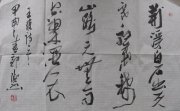 荆溪白石出天
寒红叶稀
山路元无雨
空翠湿人衣
王维诗